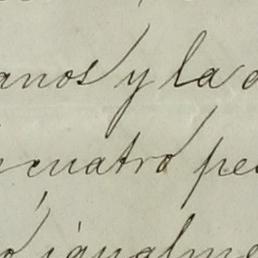 anos y la
cuatro pe
igualme